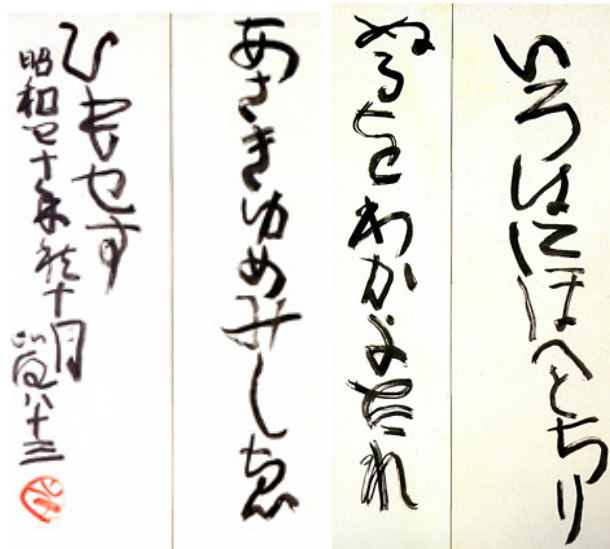 いろはにほへとちり
ぬるをわかよたれ
あさきゆめみしゑ
ひもせす
昭和 十年 十月
八十三